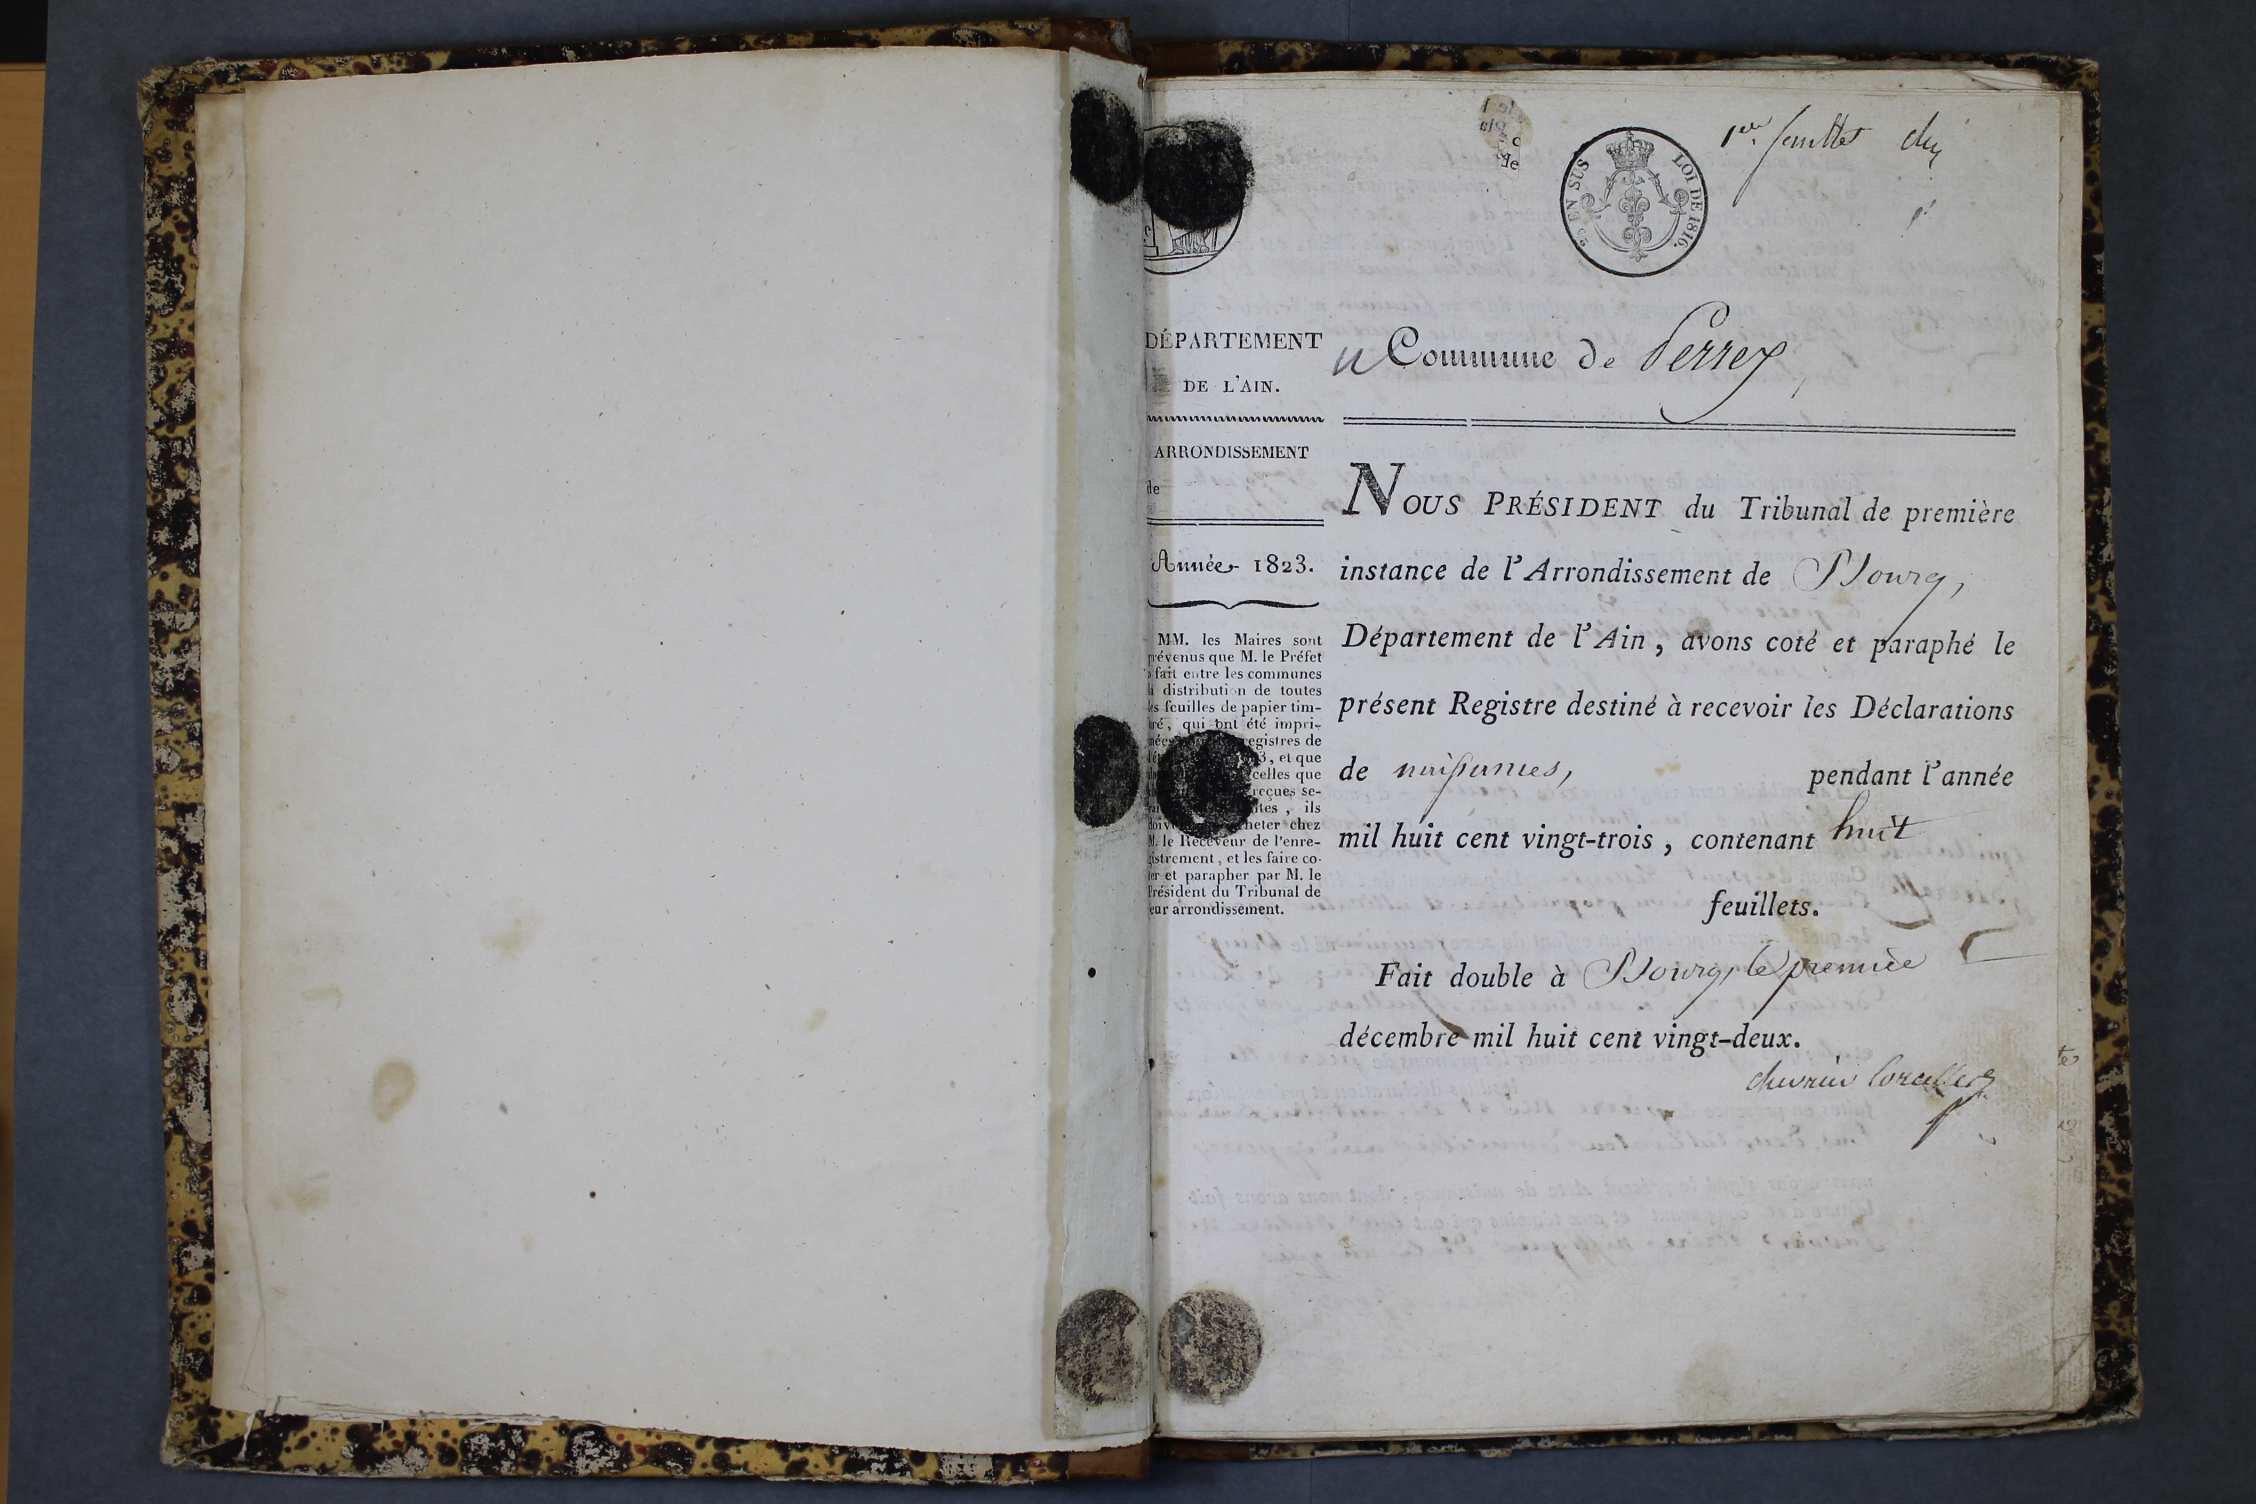 1er feuillet
EN SUS LOI DE 1816.
DÉPARTEMENT
DE L'AIN.
ARRONDISSEMENT
de
Année 1823.
MM. les Maires sont
prévenus que M. le Préfet
fait entre les communes
distribution de toutes
les feuilles de papier tim-
bré, qui ont été impri-
registres de
3, et que
celles que
reçues se-
ils
heter chez
M. le Receveur de l'enre-
gistrement, et les faire co-
ter et parapher par M. le
Président du Tribunal de
leur arrondissement.
Commune de Perrex,
NOUS PRÉSIDENT du Tribunal de première
instance de l'Arrondissement de Bourg,
Département de l'Ain, avons coté et paraphé le
présent Registre destiné à recevoir les Déclarations
de naissances, pendant l'année
mil huit cent vingt-trois, contenant huit
feuillets.
Fait double à Bourg, le premier
décembre mil huit cent vingt-deux.